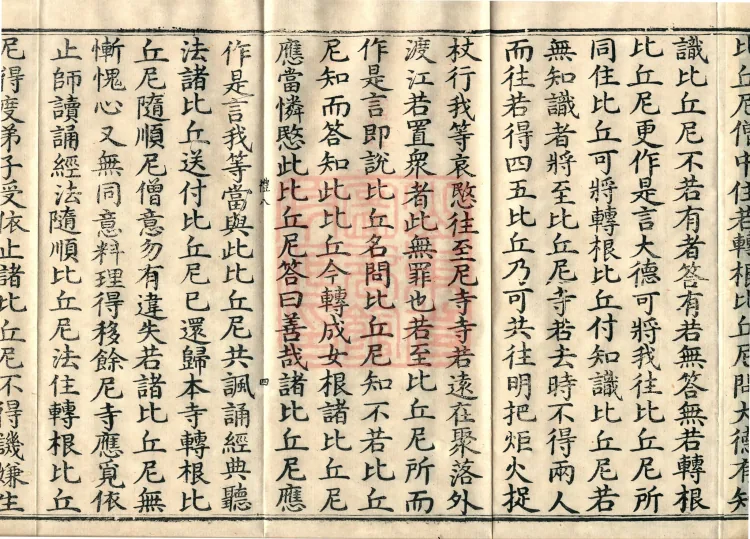 比丘尼僧中住若轉根比丘尼問大德有知
識比丘尼不若有者答有若無答無若轉根
比丘尼更作是言大德可將我往比丘尼所
同住比丘可將轉根比丘付知識比丘尼若
無知識者將至比丘尼寺若去時不得兩人
而往若得四五比丘乃可共往明把炬火捉
杖行我等哀愍往至尼寺寺若遠在聚落外
渡江若置衆者此無罪也若至比丘尼所而
作是言即說比丘名問比丘尼知不若比丘
尼知而答知此比丘今轉成女根諸比丘尼
應當憐愍此比丘尼答曰善哉諸比丘尼應
禮八 四
作是言我等當與此比丘尼共諷誦經典聽
法諸比丘送付比丘尼已還歸本寺轉根比
丘尼隨順尼僧意勿有違失若諸比丘尼無
慚愧心又無同意料理得移餘尼寺應覓依
止師讀誦經法隨順比丘尼法住轉根比丘
尼得度弟子受依止諸比丘尼不得譏嫌生